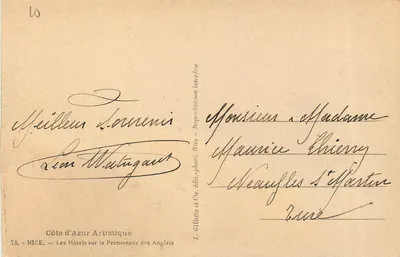 10
Meilleur Souvenir
Léon
Monsieur & Madame
Maurice Thierry
Neaufles St Martin
Eure
L. Gilletta et Cie, édit.-photo, Nice - Reproduction interdite
Côte d'Azur Artistique
72. - NICE. - Les Hôtels sur la Promenade des Anglais